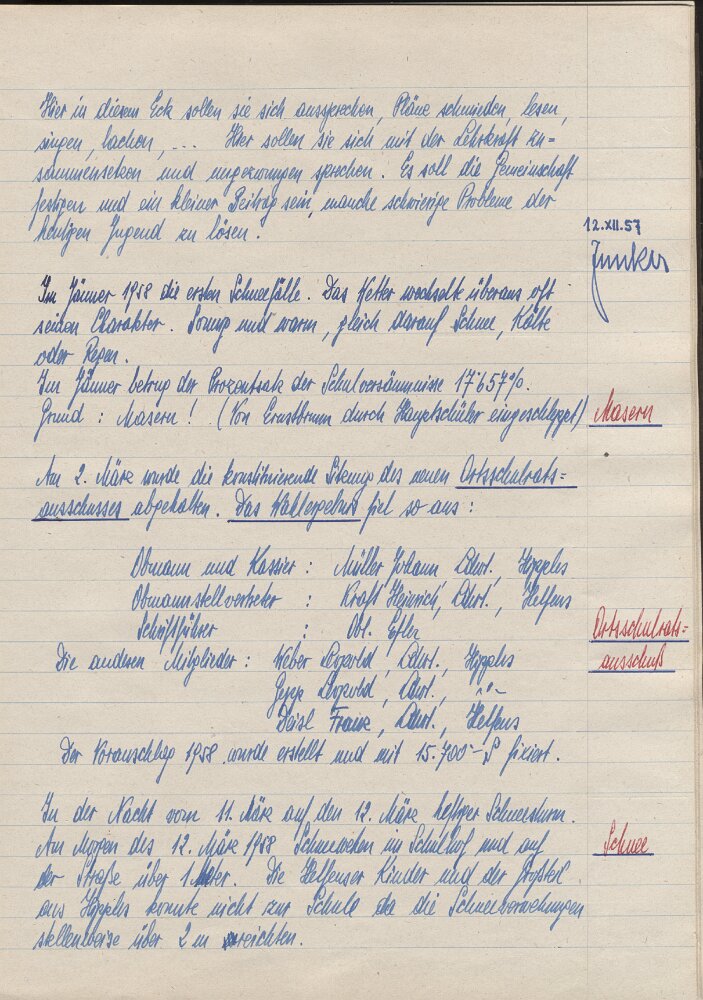 Hier in diesem Eck sollen sie sich aussprechen, Pläne schmieden, lesen,
singen, lachen, ... Hier sollen sie sich mit der Lehrkraft zu=
sammensetzen und ungezwungen sprechen. Es soll die Gemeinschaft
festigen und ein kleiner Beitrag sein, manche schwierige Probleme der
heutigen Jugend zu lösen.
12.XII.57
Junker
Im Jänner 1958 die ersten Schneefälle. Das Wetter wechselte überaus oft
seinen Charakter. Sonnig und warm, gleich darauf Schnee, Kälte
oder Regen.
Im Jänner betrug der Prozentsatz der Schulversäumnisse 17'657%.
Grund: Masern! (Von Ernstbrunn durch Hauptschüler eingeschleppt)
Masern
Am 2. März wurde die konstituierende Sitzung des neuen Ortsschulrats=
ausschusses abgehalten. Das Wahlergebnis fiel so aus:
Obmann und Kassier: Müller Johann, Ldwt., Hipples
Obmannstellvertreter: Kraft Heinrich, Ldwt., Helfens
Schriftführer: Obl.
Ortsschulrats=
ausschuß
Die anderen Mitglieder: Weber Leopold, Ldwt., Hipples
Leopold, Ldwt., -"-
Franz, Ldwt., Helfens
Der Voranschlag 1958 wurde erstellt und mit 15.700-S fixiert.
In der Nacht vom 11. März auf den 12. März heftiger Schneesturm.
Am Morgen des 12. März 1958 Schneewehen im Schulhof und auf
der Straße über 1 Meter. Die Helfenser Kinder und der Großteil
aus Hipples konnte nicht zur Schule da die Schneeverwehungen
stellenweise über 2 m reichten.
Schnee